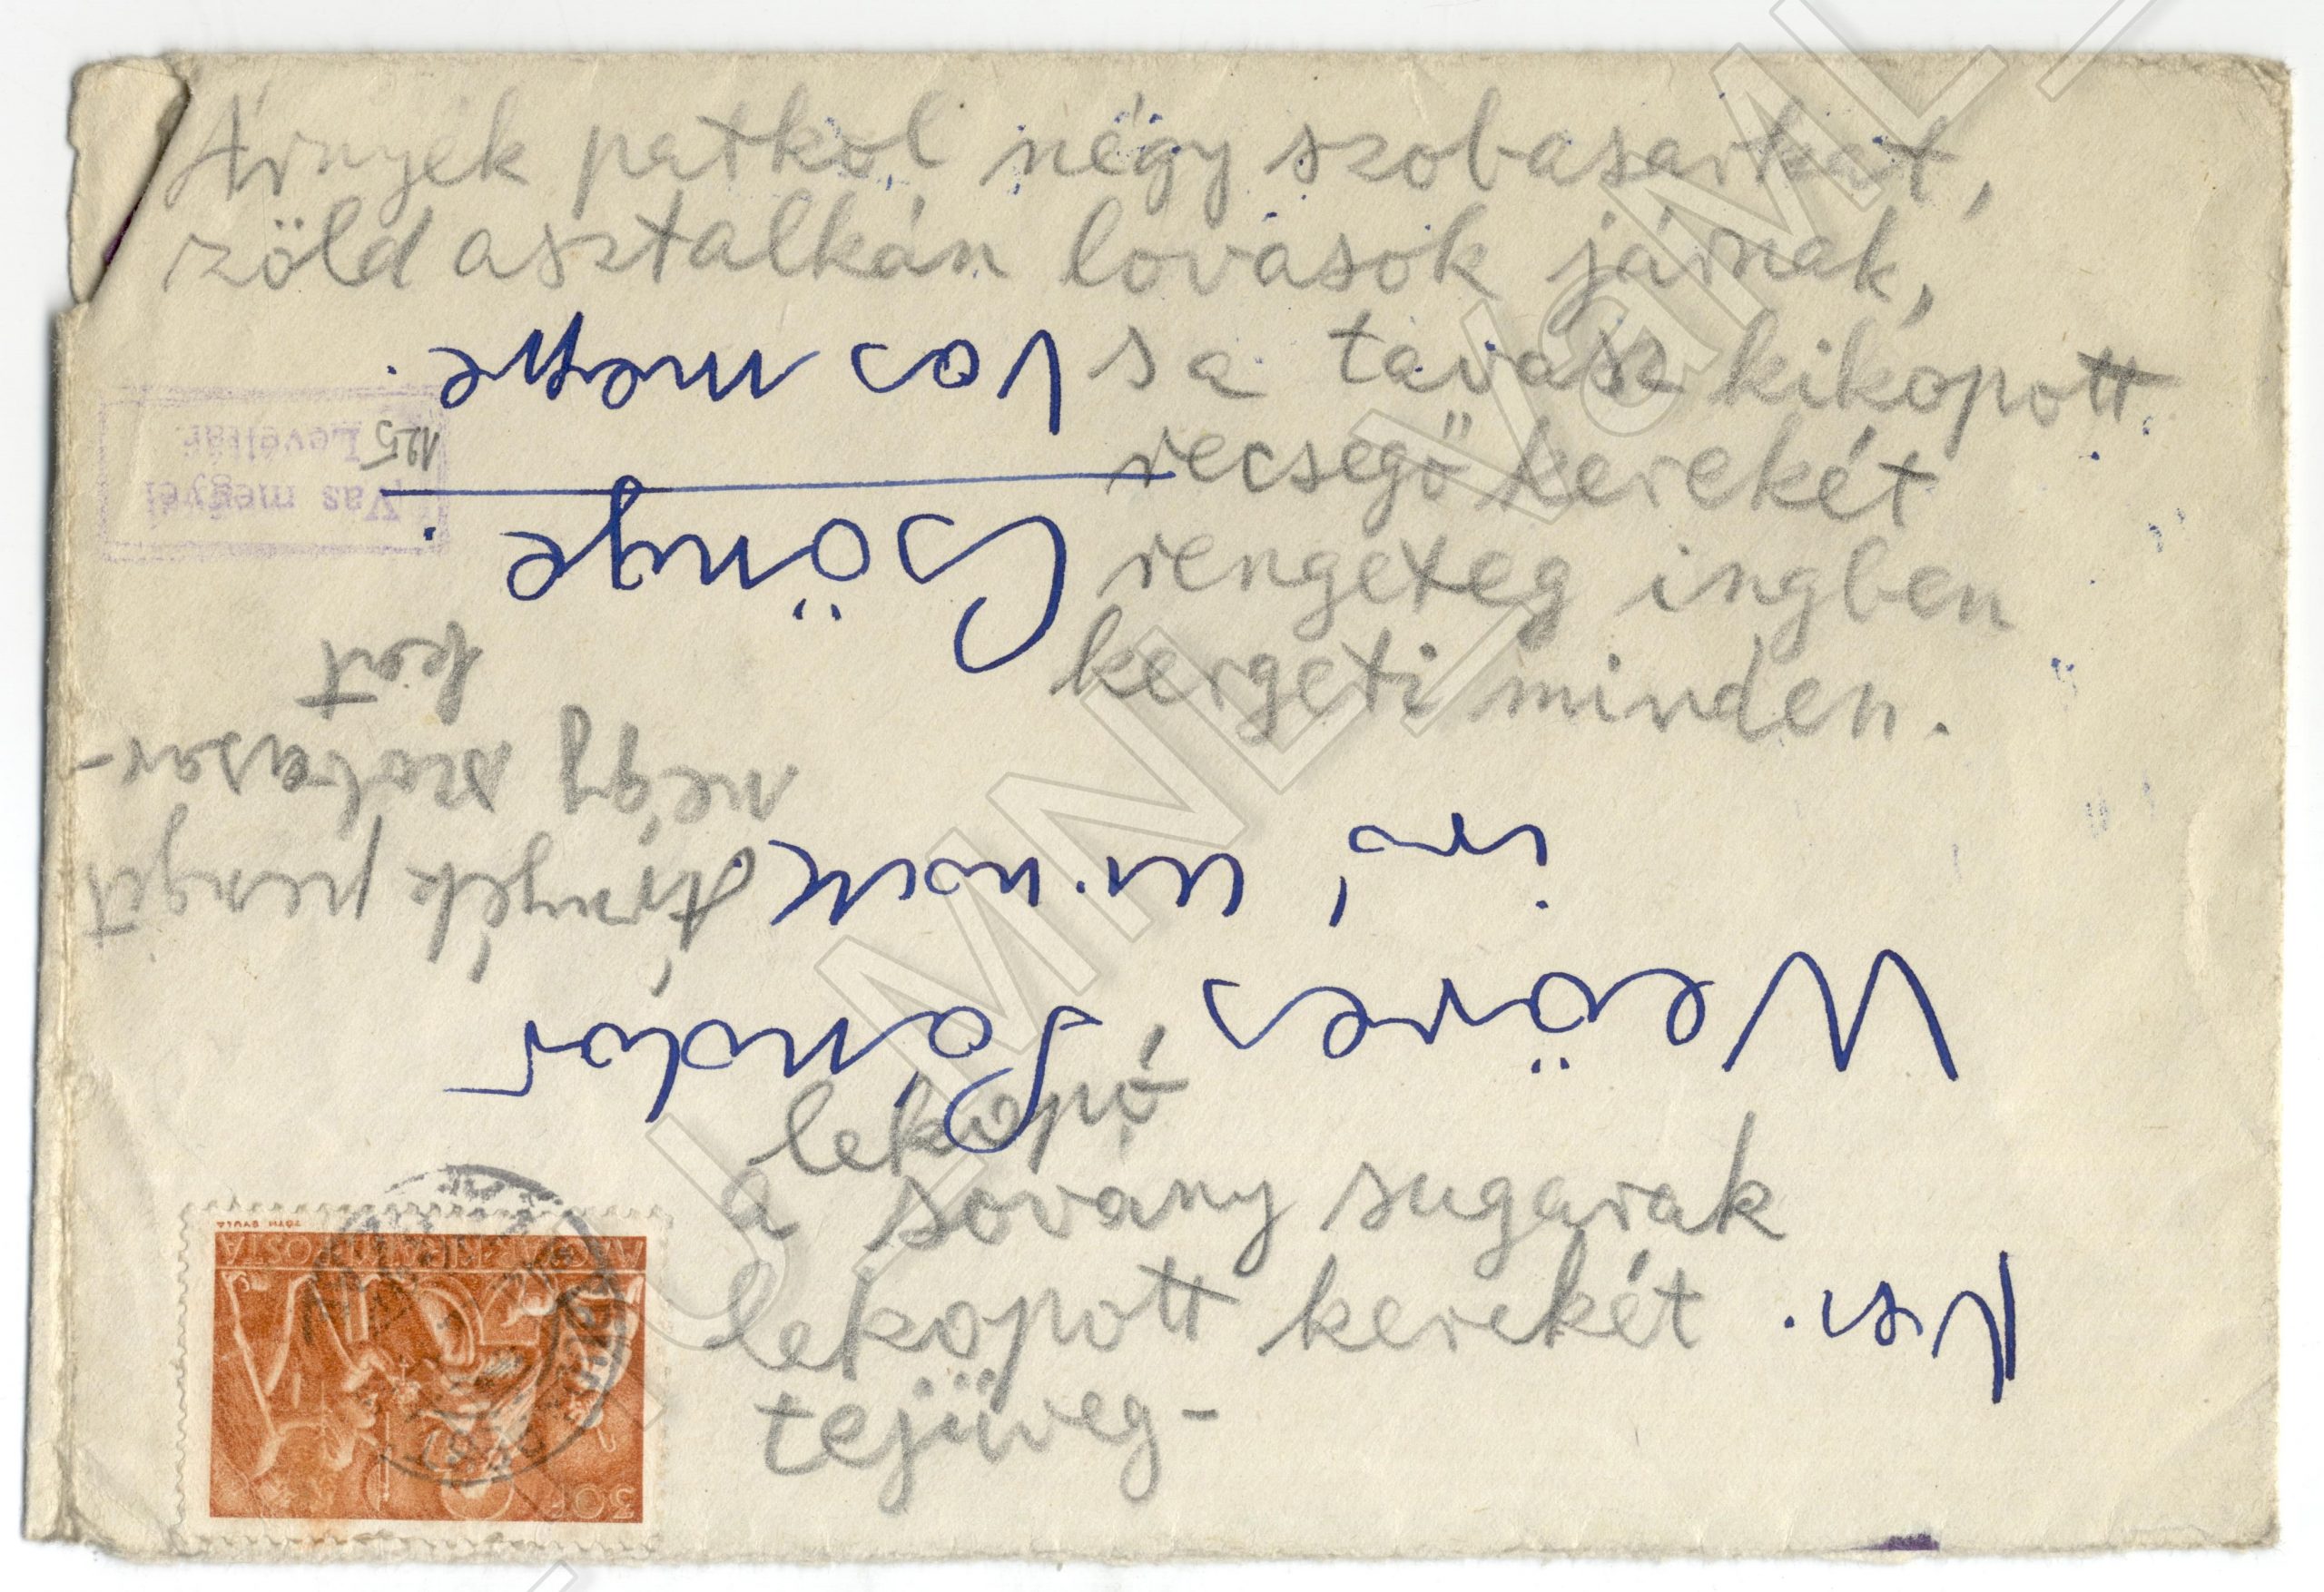 Árnyék patkol négy szobasarkat,
zöld asztalkán lovasok járnak,
s a tavasz kikopott
recsegő kerekét
rengeteg ingben
kergeti minden.
lekopó
a sovány sugarak
lekopott kerekét
tejüveg-
Ns.
Weöres Sándor
író úrnak
Csönge.
Vas megye.
Árnyék penget
négy szobasar-
kot
Vas megyei
Levéltár
125
MAGYAR KIR. POSTA
30F
TÓTH GYULA
MNL VaML